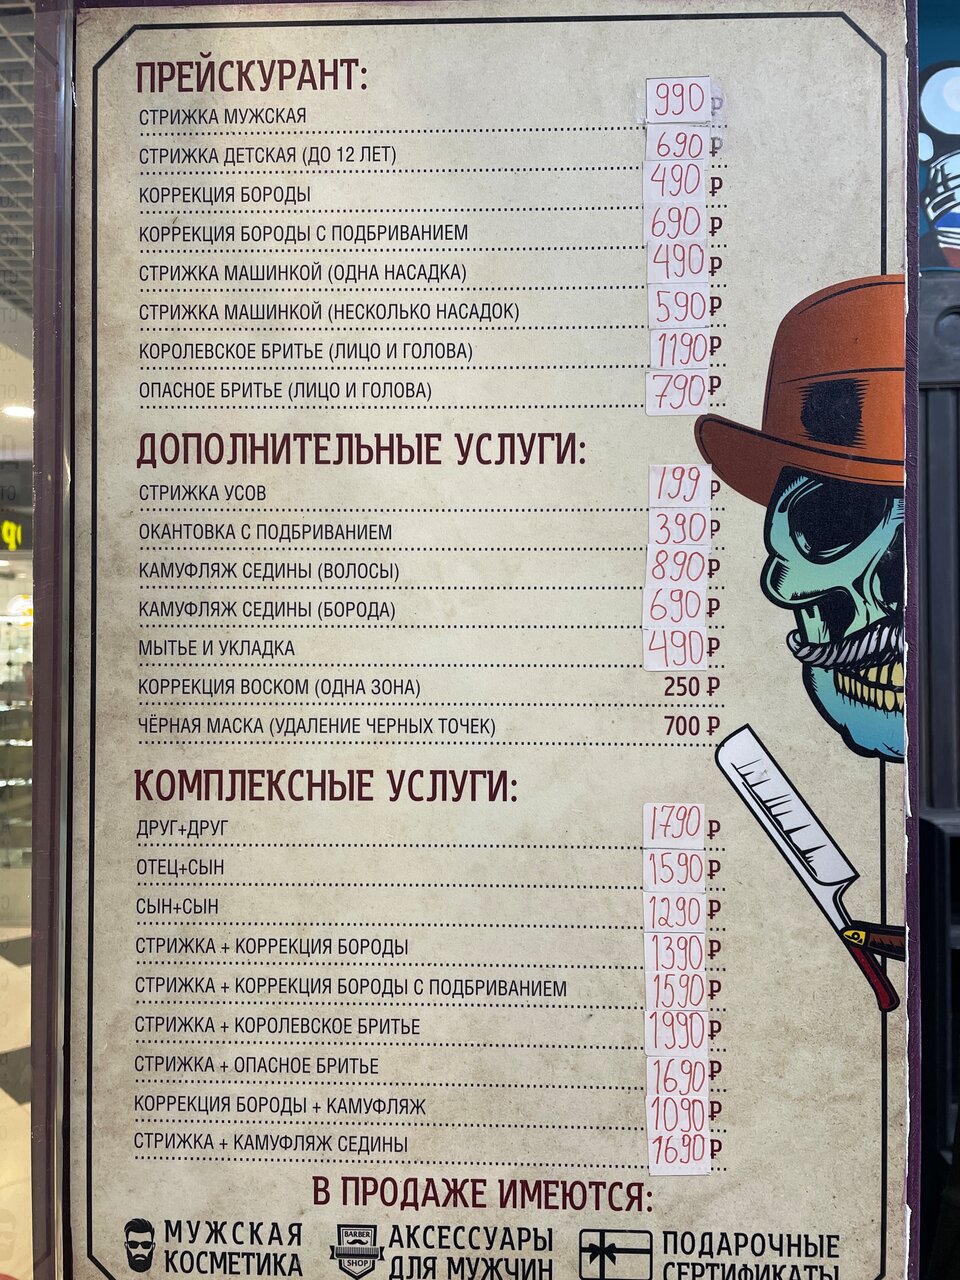 ПРЕЙСКУРАНТ:
СТРИЖКА МУЖСКАЯ 990 ₽
СТРИЖКА ДЕТСКАЯ (ДО 12 ЛЕТ) 690 ₽
КОРРЕКЦИЯ БОРОДЫ 490 ₽
КОРРЕКЦИЯ БОРОДЫ С ПОДБРИВАНИЕМ 690 ₽
СТРИЖКА МАШИНКОЙ (ОДНА НАСАДКА) 490 ₽
СТРИЖКА МАШИНКОЙ (НЕСКОЛЬКО НАСАДОК) 590 ₽
КОРОЛЕВСКОЕ БРИТЬЕ (ЛИЦО И ГОЛОВА) 1190 ₽
ОПАСНОЕ БРИТЬЕ (ЛИЦО И ГОЛОВА) 790 ₽
ДОПОЛНИТЕЛЬНЫЕ УСЛУГИ:
СТРИЖКА УСОВ 199 ₽
ОКАНТОВКА С ПОДБРИВАНИЕМ 390 ₽
КАМУФЛЯЖ СЕДИНЫ (ВОЛОСЫ) 890 ₽
КАМУФЛЯЖ СЕДИНЫ (БОРОДА) 690 ₽
МЫТЬЕ И УКЛАДКА 490 ₽
КОРРЕКЦИЯ ВОСКОМ (ОДНА ЗОНА) 250 ₽
ЧЁРНАЯ МАСКА (УДАЛЕНИЕ ЧЕРНЫХ ТОЧЕК) 700 ₽
КОМПЛЕКСНЫЕ УСЛУГИ:
ДРУГ+ДРУГ 1790 ₽
ОТЕЦ+СЫН 1590 ₽
СЫН+СЫН 1290 ₽
СТРИЖКА + КОРРЕКЦИЯ БОРОДЫ 1390 ₽
СТРИЖКА + КОРРЕКЦИЯ БОРОДЫ С ПОДБРИВАНИЕМ 1590 ₽
СТРИЖКА + КОРОЛЕВСКОЕ БРИТЬЕ 1990 ₽
СТРИЖКА + ОПАСНОЕ БРИТЬЕ 1690 ₽
КОРРЕКЦИЯ БОРОДЫ + КАМУФЛЯЖ 1090 ₽
СТРИЖКА + КАМУФЛЯЖ СЕДИНЫ 1690 ₽
В ПРОДАЖЕ ИМЕЮТСЯ:
МУЖСКАЯ
КОСМЕТИКА
BARBER
SHOP
АКСЕССУАРЫ
ДЛЯ МУЖЧИН
ПОДАРОЧНЫЕ
СЕРТИФИКАТЫ